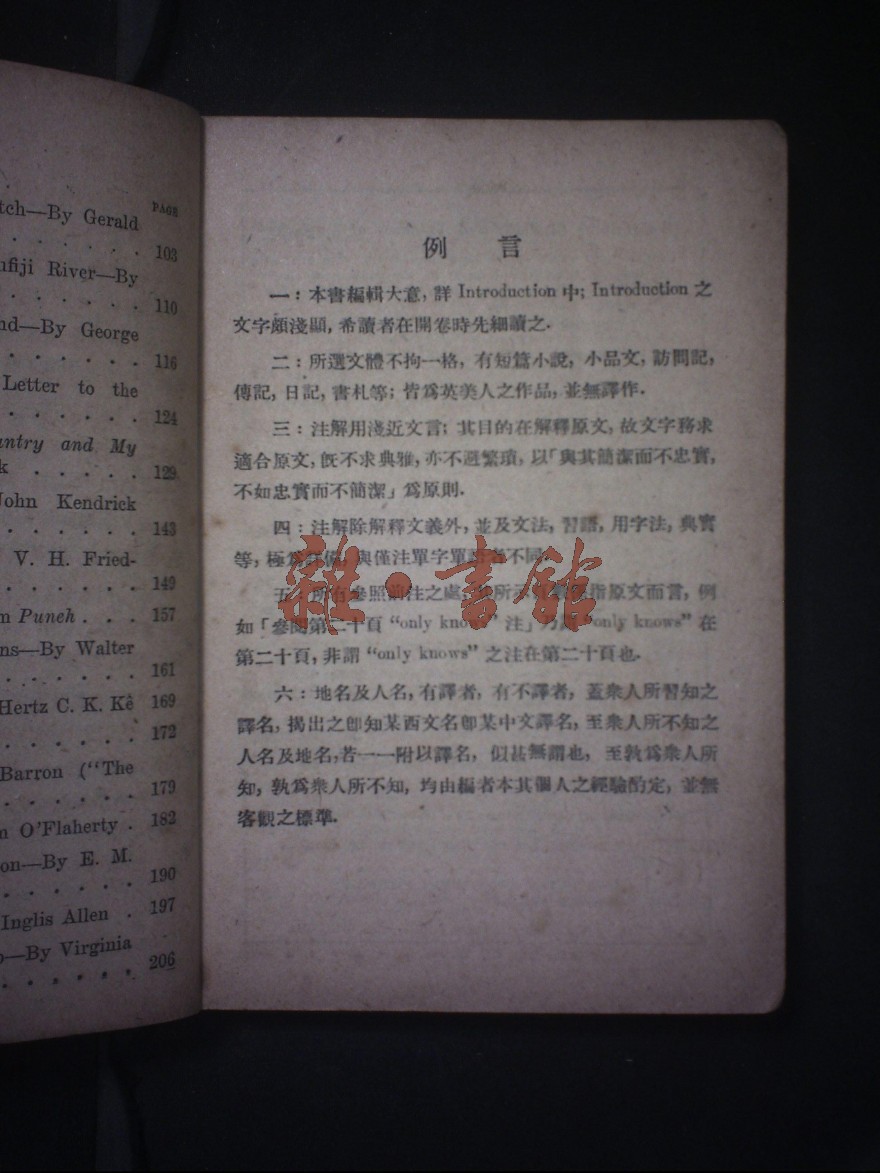 PAGE
tch—By Gerald
. . . . . . 103
nfiji River—By
. . . . . . 110
nd—By George
. . . . . . 116
Letter to the
. . . . . . 124
untry and My
k . . . . 129
John Kendrick
. . . . . . 143
V. H. Fried-
. . . . . . 149
m Punch . . . 157
ns—By Walter
. . . . . . 161
Hertz C. K. Kê 169
. . . . . . 172
Barron ("The
. . . . . . 179
m O'Flaherty . 182
on—By E. M.
. . . . . . 190
Inglis Allen . 197
o—By Virginia
. . . . . . 206
例 言
一：本書編輯大意，詳 Introduction 中；Introduction 之
文字頗淺顯，希讀者在開卷時先細讀之．
二：所選文體不拘一格，有短篇小說，小品文，訪問記，
傳記，日記，書札等；皆爲英美人之作品，並無譯作．
三：注解用淺近文言；其目的在解釋原文，故文字務求
適合原文，旣不求典雅，亦不避繁瑣，以「與其簡潔而不忠實，
不如忠實而不簡潔」爲原則．
四：注解除解釋文義外，並及文法，習語，用字法，典實
等，極爲詳備，與僅注單字單語者不同．
五：所有參照前注之處，所示指原文而言，例
如「參閱第二十頁 "only knows" 注」乃謂 "only knows" 在
第二十頁，非謂 "only knows" 之注在第二十頁也．
六：地名及人名，有譯者，有不譯者，蓋衆人所習知之
譯名，揭出之卽知某西文名卽某中文譯名，至衆人所不知之
人名及地名，若一一附以譯名，似甚無謂也，至孰爲衆人所
知，孰爲衆人所不知，均由編者本其個人之經驗酌定，並無
客觀之標準．
雜·書館